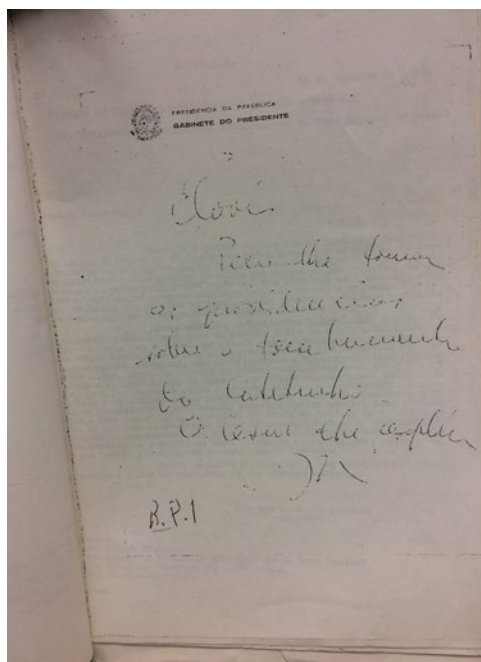 PRESIDÊNCIA DA REPÚBLICA
GABINETE DO PRESIDENTE
Clovis
Peço lhe tomar
as providencias
sobre o tombamento
do Catetinho
O Cesar lhe explica
B.P.1